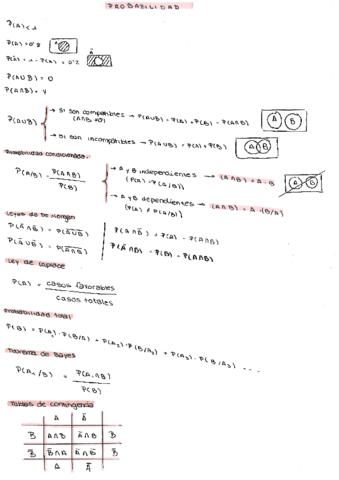 PROBABILIDAD
P(A) < 1
P(A) = 0'8
P(Ā) = 1 - P(A) = 0'2
P(A∪B) = O
P(A∩B) = Y
P(A∪B)
→ Si son compatibles → P(A∪B) = P(A) + P(B) - P(A∩B)
(A∩B ≠ 0)
→ Si son incompatibles → P(A∪B) = P(A) + P(B)
Probabilidad condicionada.
P(A/B) = P(A∩B) / P(B)
→ A y B independientes → (A∩B) = A · B
(P(A) = P(A/B))
→ A y B dependientes → (A∩B) = A · (B/A)
(P(A) ≠ P(A/B))
Leyes de De Morgan
P(Ā∩B̄) = P(A̅∪̅B̅)
P(Ā∪B̄) = P(A̅∩̅B̅)
P(A∩B̄) = P(A) - P(A∩B)
P(Ā∩B) = P(B) - P(A∩B)
Ley de Laplace
P(A) = casos favorables / casos totales
Probabilidad total
P(B) = P(A₁) · P(B/A₁) + P(A₂) · P(B/A₂) + P(A₃) · P(B/A₃) ....
Teorema de Bayes
P(A₁/B) = P(A₁∩B) / P(B)
Tablas de contingencia
A Ā
B A∩B Ā∩B B
B̄ B̄∩A Ā∩B̄ B̄
A Ā